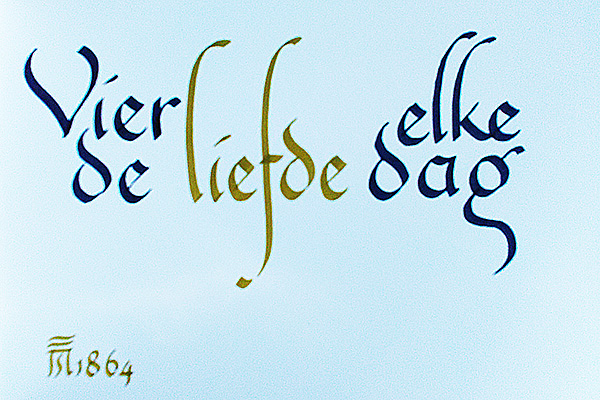 Vier elke
de liefde dag
1864